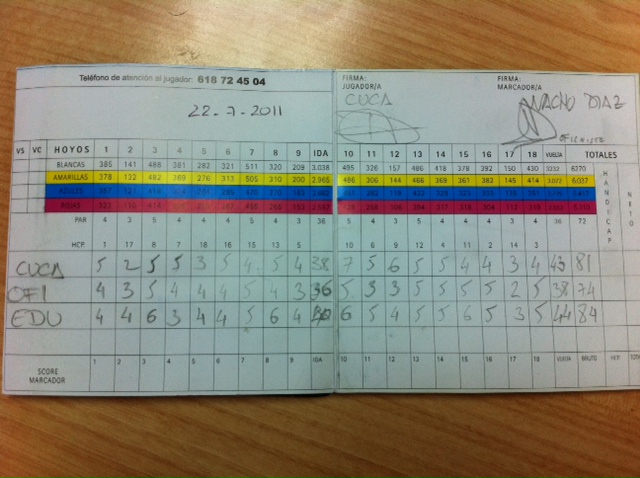 Teléfono de atención al jugador: 618 72 45 04
22-7-2011
FIRMA: JUGADOR/A
CUCA
FIRMA: MARCADOR/A
NACHO DIAZ
VS VC HOYOS 1 2 3 4 5 6 7 8 9 IDA 10 11 12 13 14 15 16 17 18 VUELTA TOTALES
BLANCAS 385 141 488 381 282 321 511 320 209 3.038 495 326 157 486 418 378 392 150 430 3232 6270
AMARILLAS 378 132 482 369 276 313 505 310 200 2.965 486 306 144 466 369 361 382 145 414 3.072 6.037
AZULES
ROJAS
HANDICAP
NETO
PAR 4 3 5 4 4 4 5 4 3 36 5 4 3 5 4 4 4 3 4 36 72
HCP. 1 17 8 7 18 16 15 13 5 10 6 9 12 4 11 2 14 3
CUCA 5 2 5 5 3 5 4 5 4 38 7 5 6 5 5 4 4 3 4 43 81
OFI 4 3 5 4 4 4 5 4 3 36 5 3 3 5 5 5 5 2 5 38 74
EDU 4 4 6 3 4 4 5 6 4 40 6 5 4 5 5 6 5 3 5 44 84
SCORE MARCADOR 1 2 3 4 5 6 7 8 9 IDA 10 11 12 13 14 15 16 17 18 VUELTA BRUTO HCP.